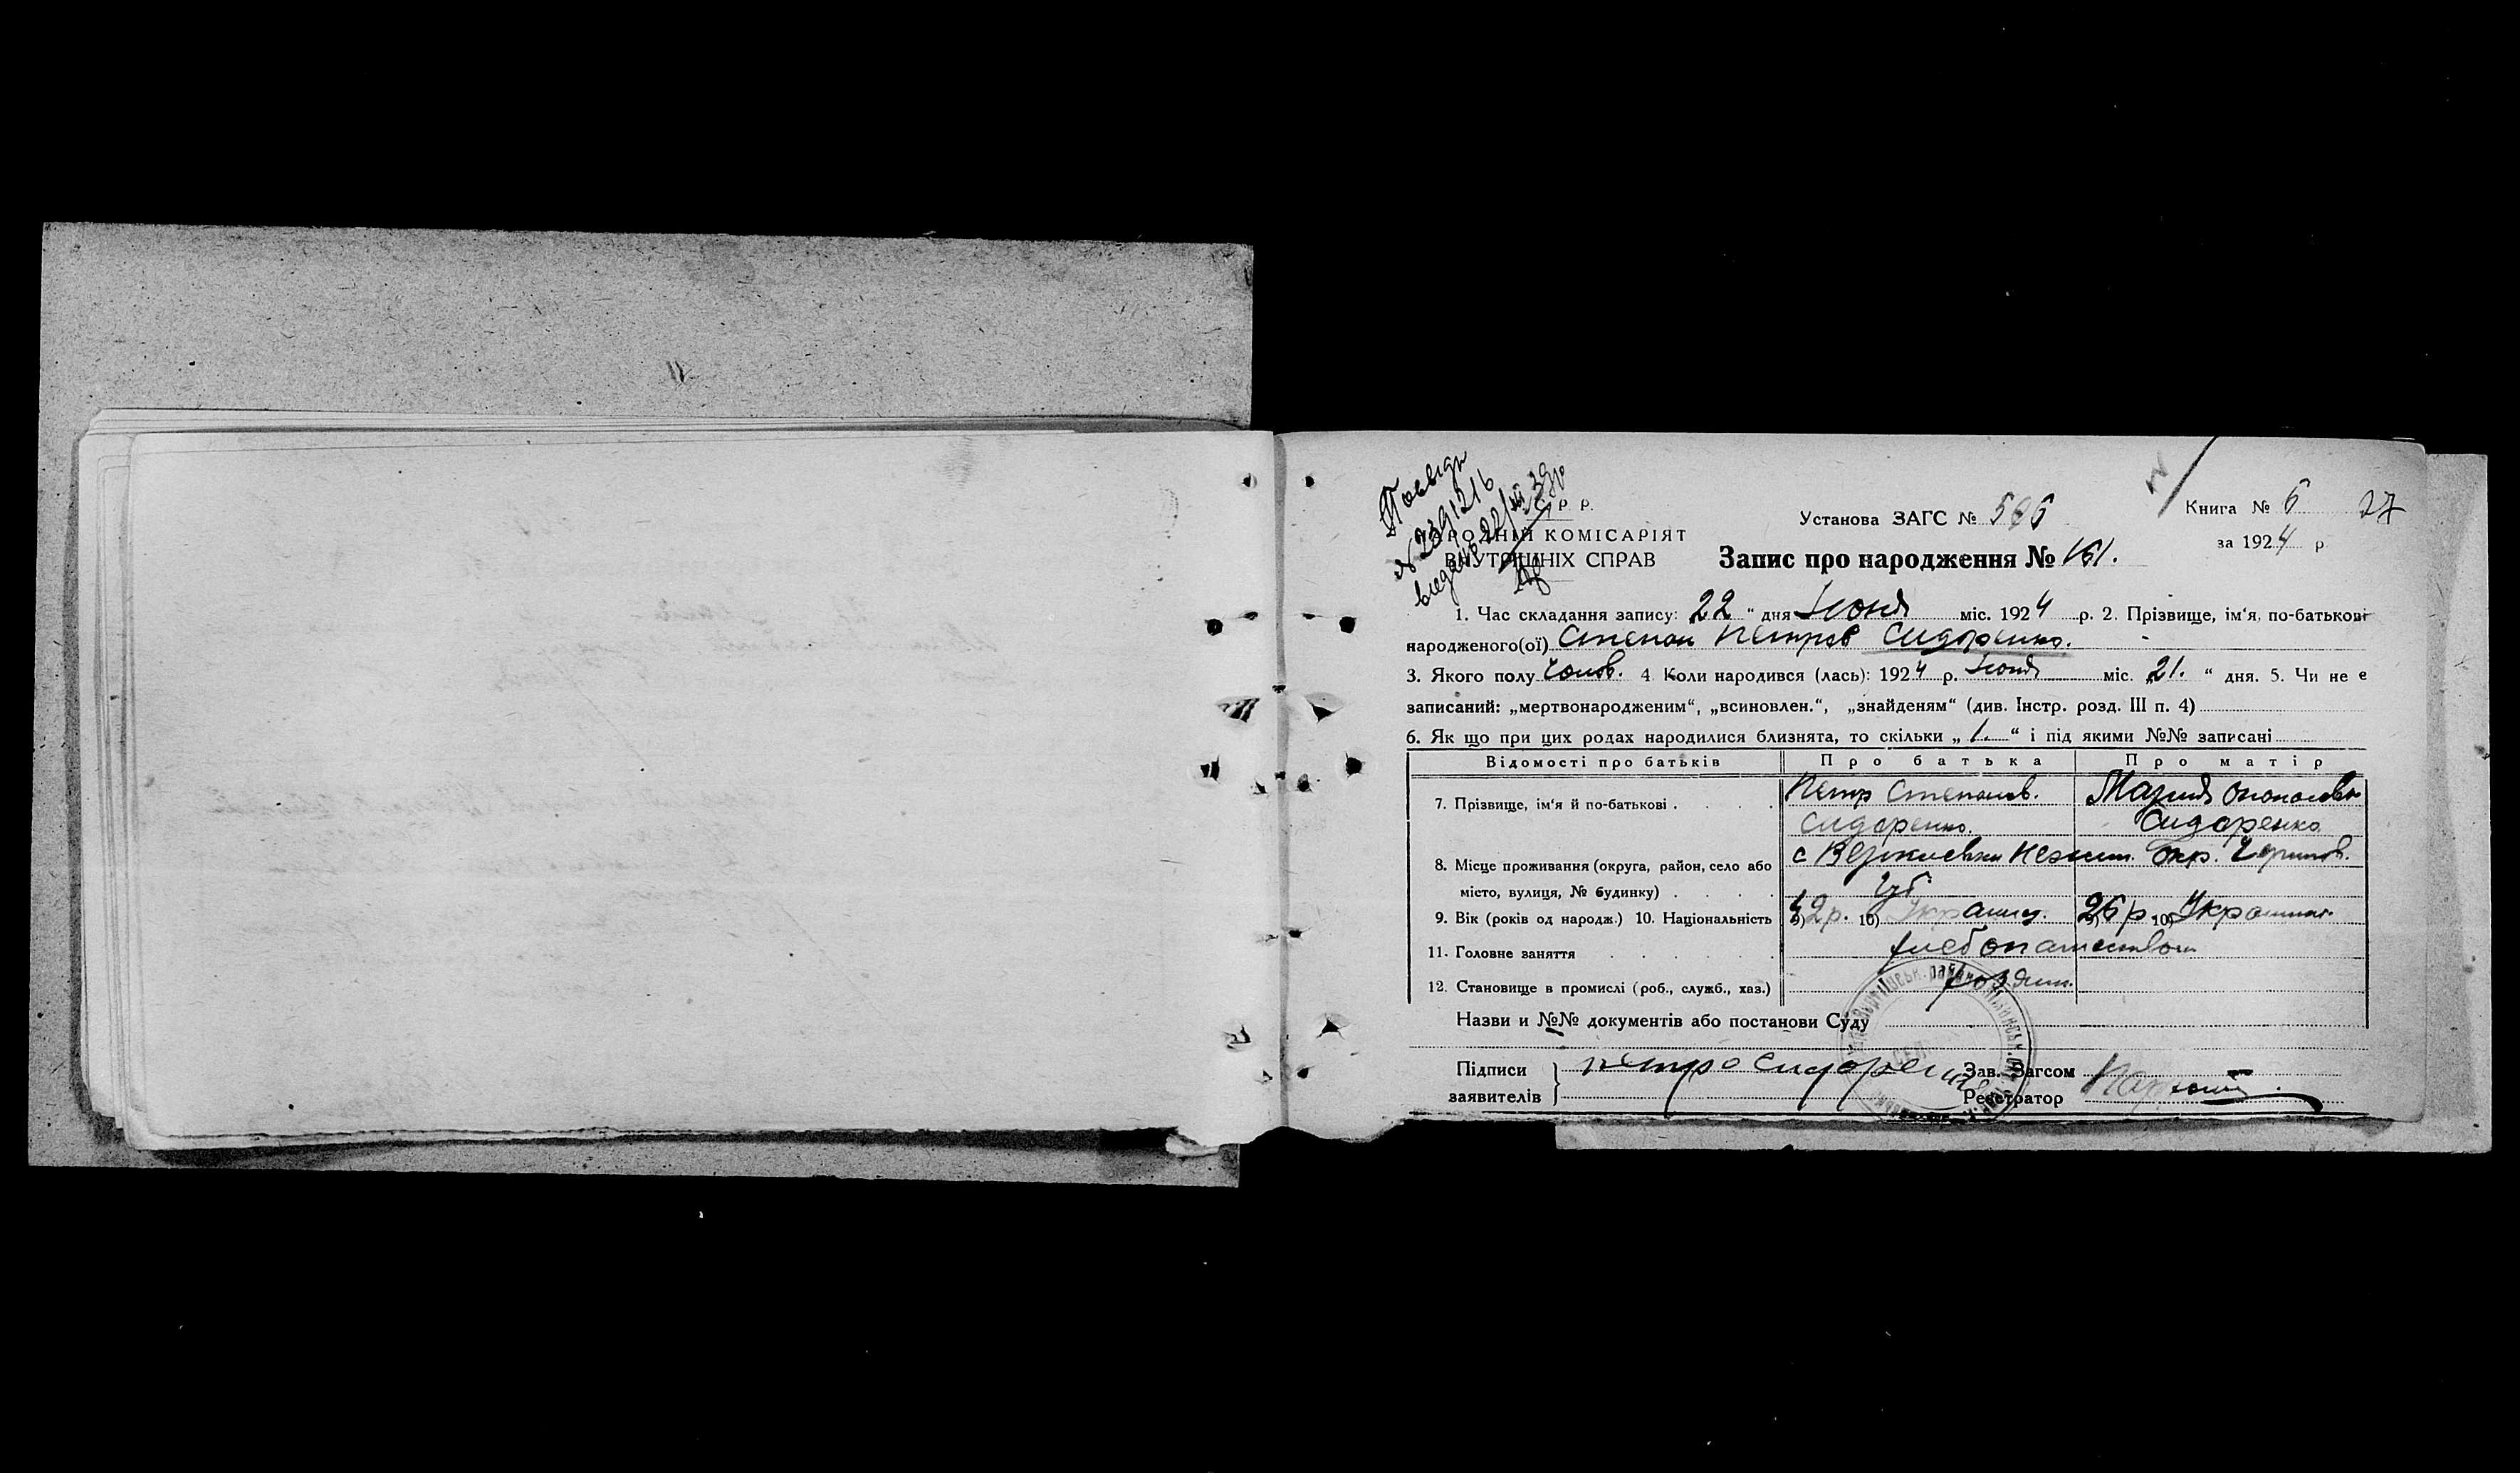 Посвідч
№ 2391216
видано 22/III 39р
С. Р. Р.
НАРОДНІЙ КОМІСАРІЯТ
ВНУТРІШНІХ СПРАВ
Установа ЗАГС № 566
Книга № 6 27
за 1924 р.
Запис про народження № 161.
1. Час складання запису: 22 " дня Іюня міс. 1924 р. 2. Прізвище, ім'я, по-батькові
народженого(ої) Степан Петров Сидоренко.
3. Якого полу Чолов. 4 Коли народився (лась): 1924 р. Іюня міс. „21. " дня. 5. Чи не є
записаний: „мертвонародженим", „всиновлен.", „знайденям" (див. Інстр. розд. III п. 4)
6. Як що при цих родах народилися близнята, то скільки „1." і під якими №№ записані
Відомості про батьків Про батька Про матір
7. Прізвище, ім'я й по-батькові . . . . Петр Степанов. Мария
Сидоренко. Сидоренко
8. Місце проживання (округа, район, село або с Веркиевки Нежин. Окр. Чернигов.
місто, вулиця, № будинку) . . . . Губ
9. Вік (років од народж.) 10. Національність 9) 42р. 10) Украинц. 9) 26 р. 10) Украинка
11. Головне заняття . . . . . хлебопашеством
12. Становище в промислі (роб., служб., хаз.) хозяин.
Назви и №№ документів або постанови Суду
Підписи Петро Сидоренко Зав. Загсом
заявителів Реєстратор